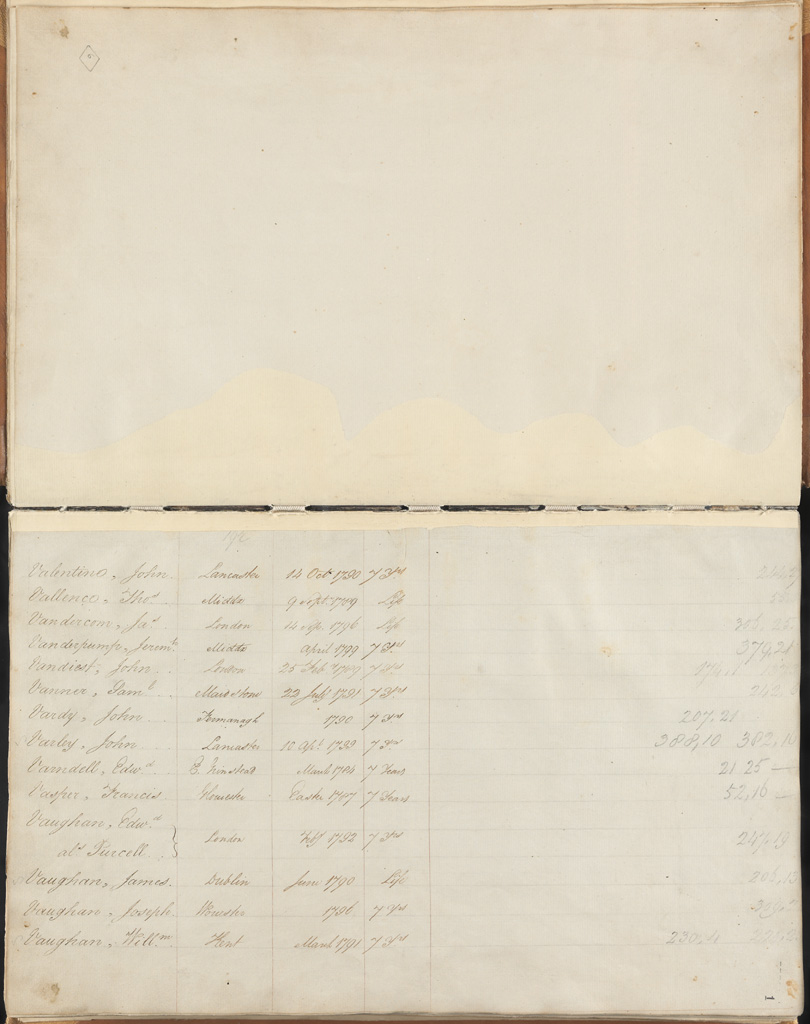 Valentino, John Lancaster 14 Oct 1790 7 Yrs
Vallence, Thos. Middx 9 Sept. 1789 Life
Vandercom, Jas. London 14 Sep. 1796 Life
Vanderpump, Jerem. Middx April 1799 7 Yrs 379,21
Vandiest, John London 7 Yrs
Vanner, Saml. Maidstone 22 July 1791 7 Yrs 242
Vardy, John Fermanagh 1790 7 Yrs 207,21
Varley, John Lancaster 7 Yrs 388,10 382,10
Varndell, Edwd. E. Grinstead March 1784 7 Years 21 25 —
Vasper, Francis Gloucester Easter 1787 7 Years 52,16 —
Vaughan, Edwd.
als. Purcell London Feby 1792 7 Yrs 247,19
Vaughan, James. Dublin June 1790 Life
Vaughan, Joseph Worcester 1796 7 Yrs
Vaughan, Willm. Kent March 1791 7 Yrs 230,4